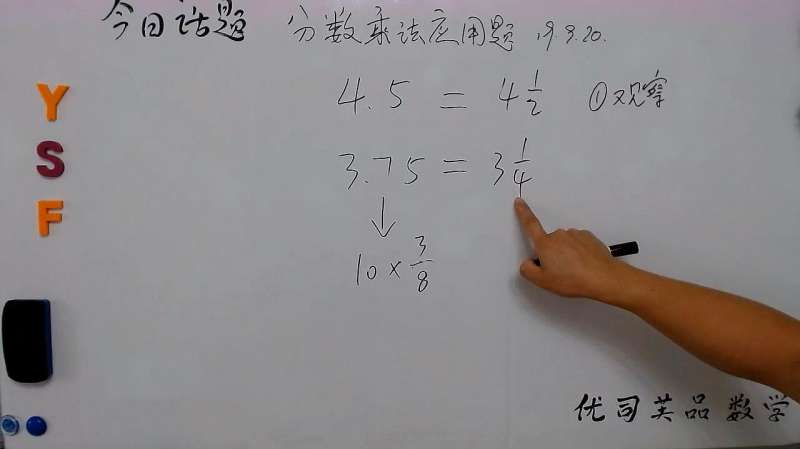 今日话题 分数乘法应用题 19.9.20.
4.5 = 4 1/2 ①观察
3.75 = 3 1/4
↓
10 × 3/8
Y
S
F
优司英品数学